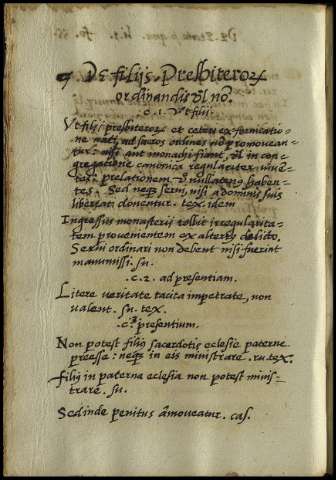 De filijs Presbiterorꝝ
ordinandis vl' no.
c. 1. Vt filii
Vt filij presbiterorꝝ et ceteri ex fornicatio=
ne nati, ad sacros ordines nō promovean=
tur: nisi aut monachi fiant, vl' in con=
gregatione canonica regulariter viuē=
tes: prelationem vō nullatenꝰ habeā=
tes. Sed neqꝫ serui, nisi a dominis suis
libertati donentur. tex. idem
Ingressus monasterij tollit irregularita=
tem prouenientem ex alterꝰ delicto.
Serui ordinari non debent nisi fuerint
manumissi. su.
c. 2. ad presentiam.
Litere veritate tacita impetrate, non
valent. su. tex.
c. 3 presentium.
Non potest filiꝰ sacerdotis eclesie paterne
preesse: neqꝫ in eis ministrare. ru. tex.
Filiꝰ in paterna eclesia non potest minis=
trare. su.
Sed inde penitus amoueatur. cas.